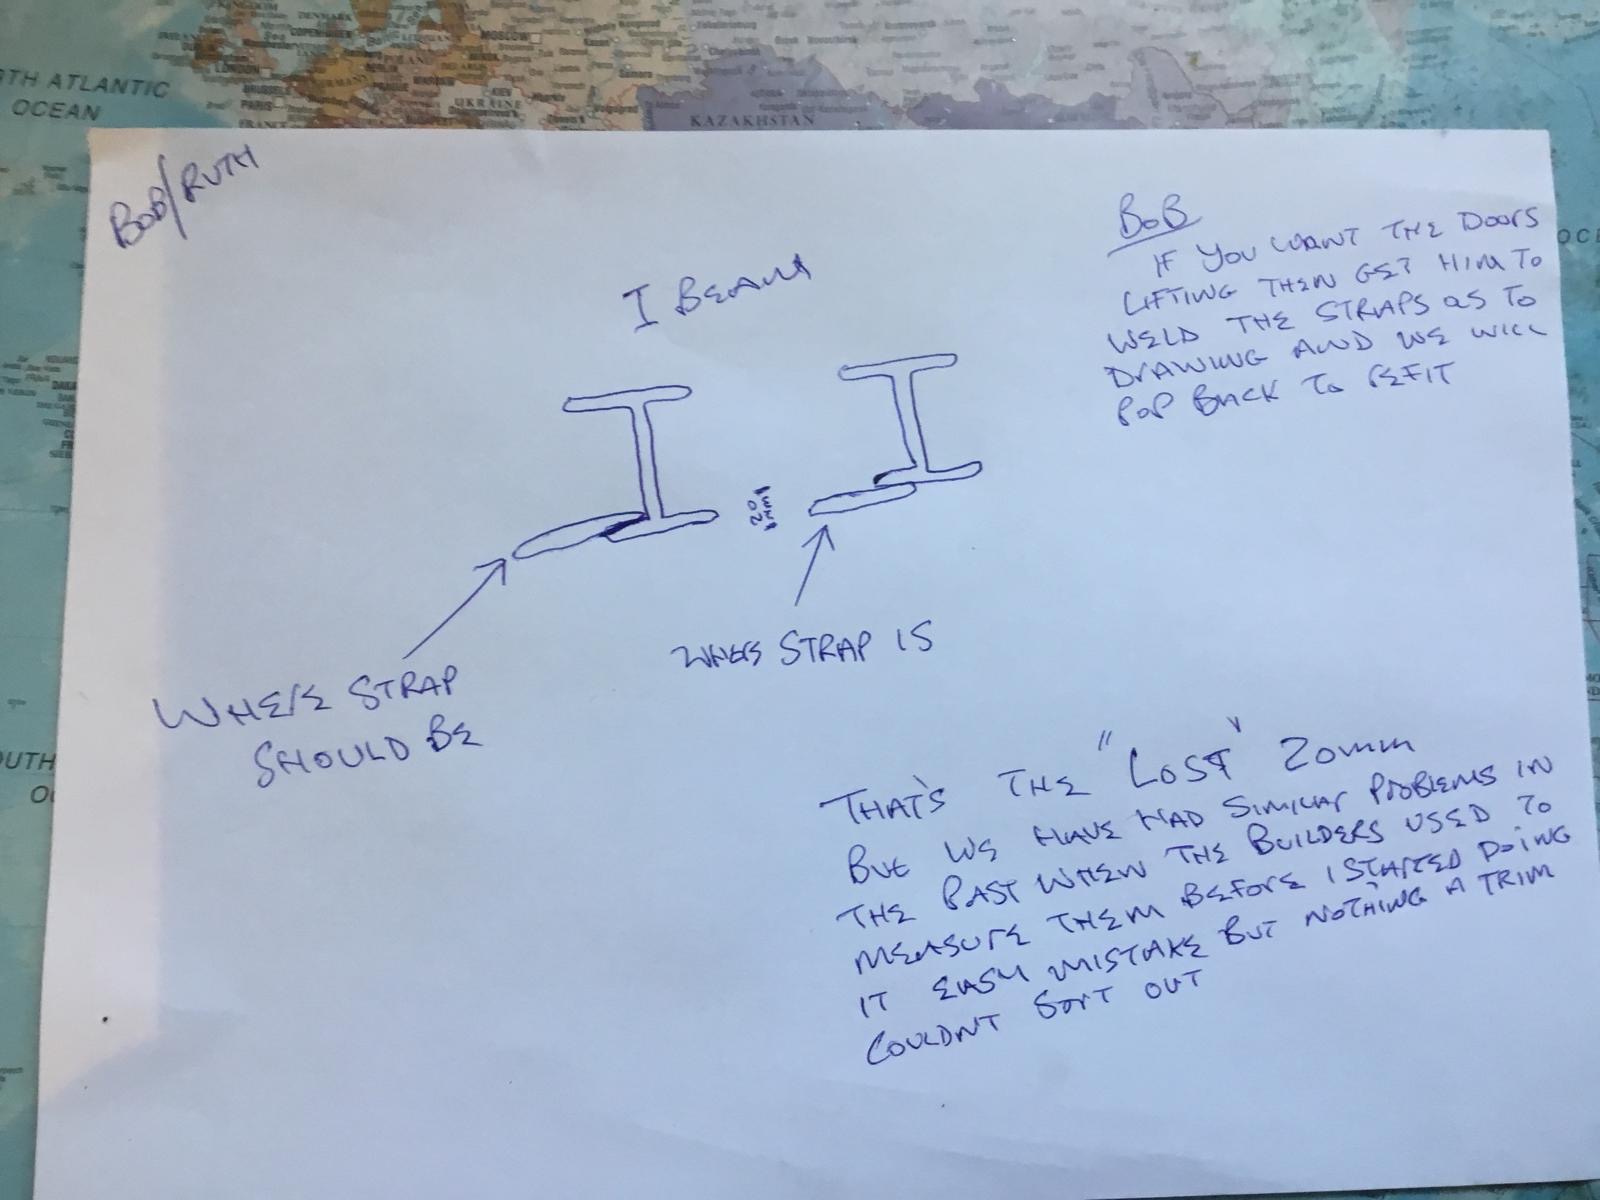 TH ATLANTIC
OCEAN
DENMARK
COPENHAGEN
MOSCOW
LONDON
PARIS
KIEV
UKRAINE
KAZAKHSTAN
BOB/RUTH
I BEAM
BOB
IF YOU WANT THE DOORS
LIFTING THEN GET HIM TO
WELD THE STRAPS AS TO
DRAWING AND WE WILL
POP BACK TO REFIT
20mm
WHERE STRAP
SHOULD BE
WHERE STRAP IS
OUTH
THAT'S THE "LOST" 20mm
BUT WE HAVE HAD SIMILAR PROBLEMS IN
THE PAST WHEN THE BUILDERS USED TO
MEASURE THEM BEFORE I STARTED DOING
IT EASY MISTAKE BUT NOTHING A TRIM
COULDNT SORT OUT